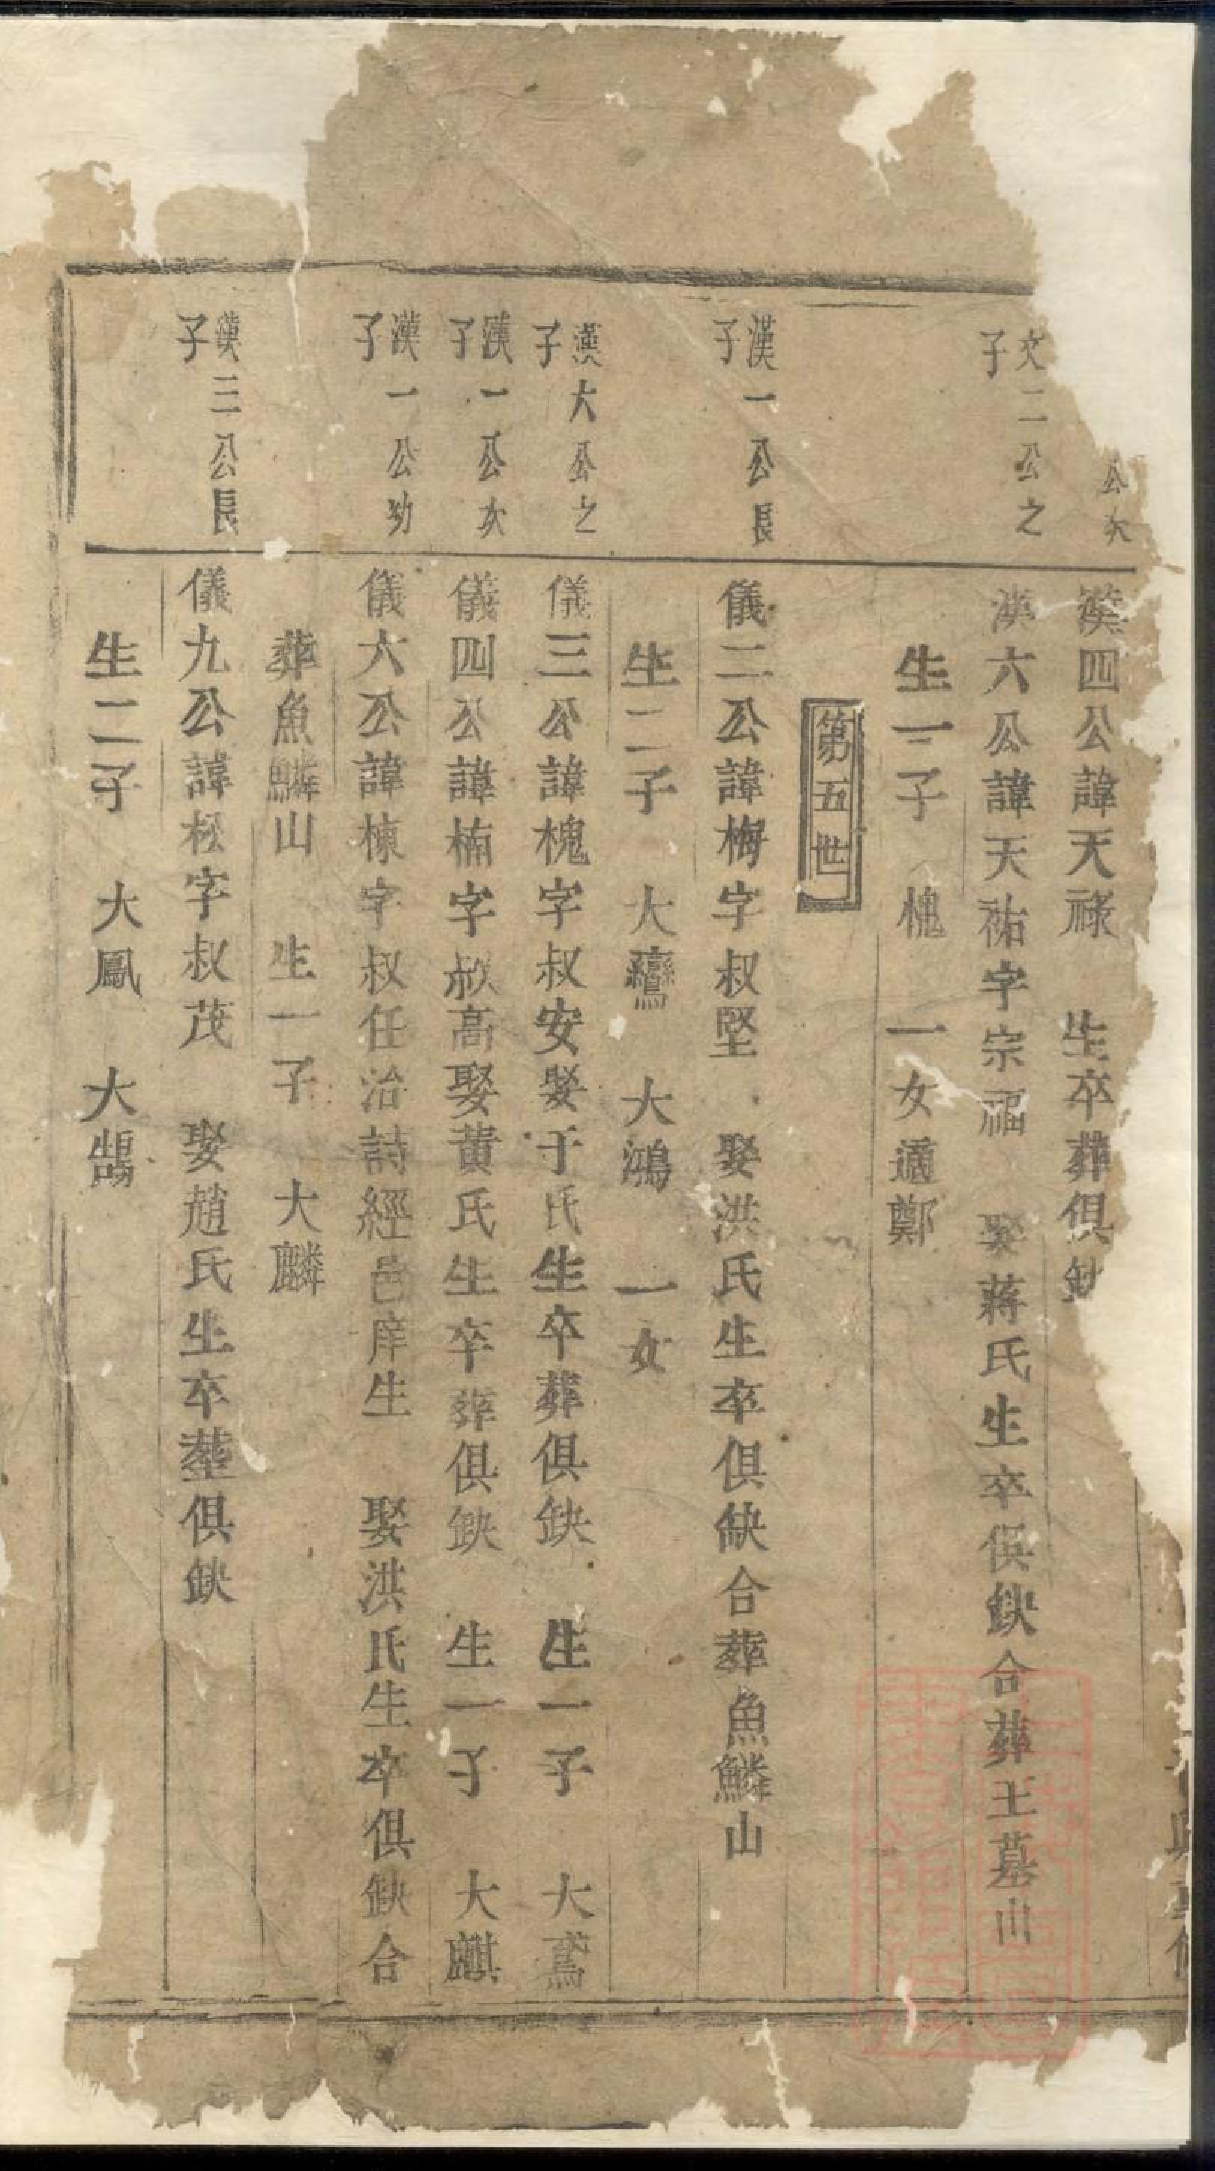 公次
漢四公諱天祿 生卒葬俱缺
文二公之子
漢六公諱天祐字宗福 娶蔣氏生卒俱缺合葬王墓山
生一子 槐 一女適鄭
第五世
漢一公長子
儀二公諱梅字叔堅 娶洪氏生卒俱缺合葬魚鱗山
生二子 大鸞 大鴻 一女
漢六公之子
儀三公諱槐字叔安娶于氏生卒葬俱缺 生一子 大鳶
漢一公次子
儀四公諱楠字叔高娶黃氏生卒葬俱缺 生一子 大麒
漢一公幼子
儀六公諱棟字叔任治詩經邑庠生 娶洪氏生卒俱缺合
葬魚鱗山 生一子 大麟
漢三公長子
儀九公諱松字叔茂 娶趙氏生卒葬俱缺
生二子 大鳳 大鵠